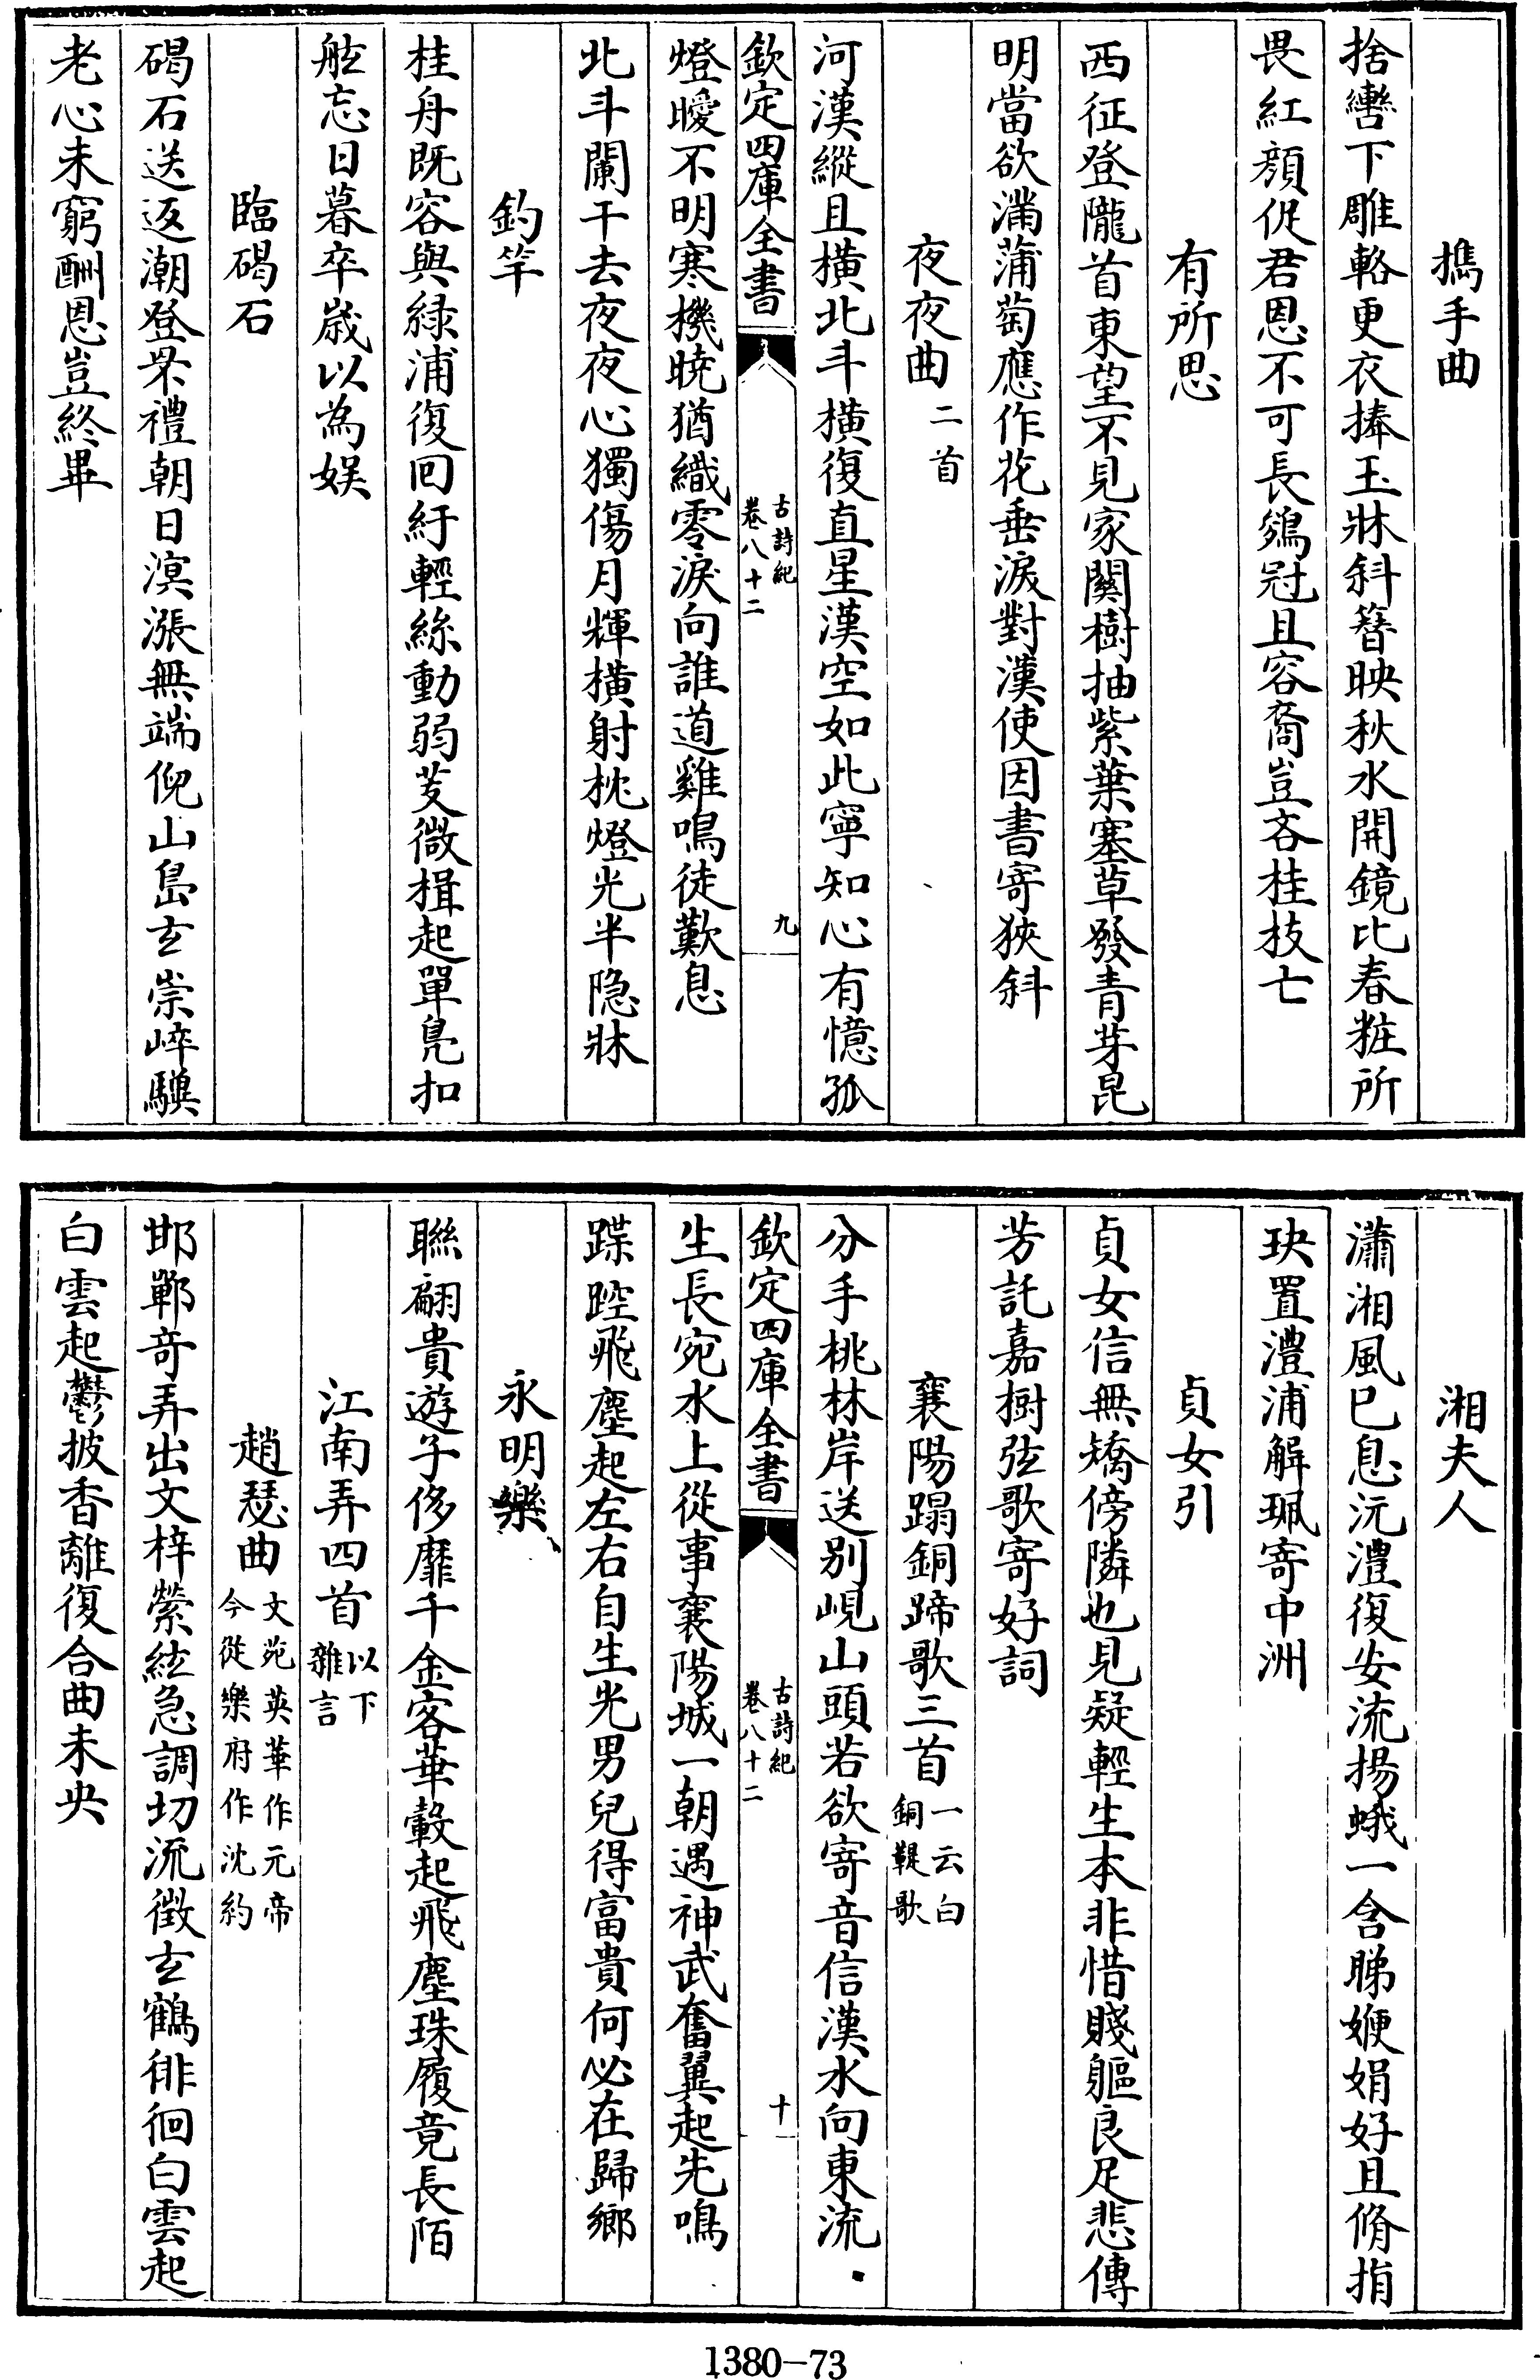 攜手曲
捨轡下雕輅更衣捧玉牀斜簪映秋水開鏡比春粧所
畏紅顏促君恩不可長鵕冠且容裔豈吝桂枝亡
有所思
西征登隴首東望不見家關樹抽紫葉塞草發青芽昆
明當欲滿蒲萄應作花垂淚對漢使因書寄狹斜
夜夜曲二首
河漢縱且橫北斗橫復直星漢空如此寧知心有憶孤
欽定四庫全書 古詩紀 卷八十二 九
燈曖不明寒機曉猶織零淚向誰道雞鳴徒歎息
北斗闌干去夜夜心獨傷月輝橫射枕燈光半隱牀
釣竿
桂舟既容與緑浦復回紆輕絲動弱芰微楫起單鳧扣
舷忘日暮卒歲以為娱
臨碣石
碣石送返潮登罘禮朝日溟漲無端倪山島玄崇崒驥
老心未窮酬恩豈終畢
湘夫人
瀟湘風已息沅澧復安流揚蛾一含睇㛹娟好且脩捐
玦置澧浦解珮寄中洲
貞女引
貞女信無矯傍隣也見疑輕生本非惜賤軀良足悲傳
芳託嘉樹弦歌寄好詞
襄陽蹋銅蹄歌三首一云白銅鞮歌
分手桃林岸送别峴山頭若欲寄音信漢水向東流
欽定四庫全書 古詩紀 卷八十二 十
生長宛水上從事襄陽城一朝遇神武奮翼起先鳴
蹀跧飛塵起左右自生光男兒得富貴何必在歸鄉
永明樂
聯翩貴遊子侈靡千金客華轂起飛塵珠履竟長陌
江南弄四首以下雜言
趙瑟曲文苑英華作元帝今從樂府作沈約
邯鄲奇弄出文梓縈絃急調切流徵玄鶴徘徊白雲起
白雲起鬱披香離復合曲未央
1380-73